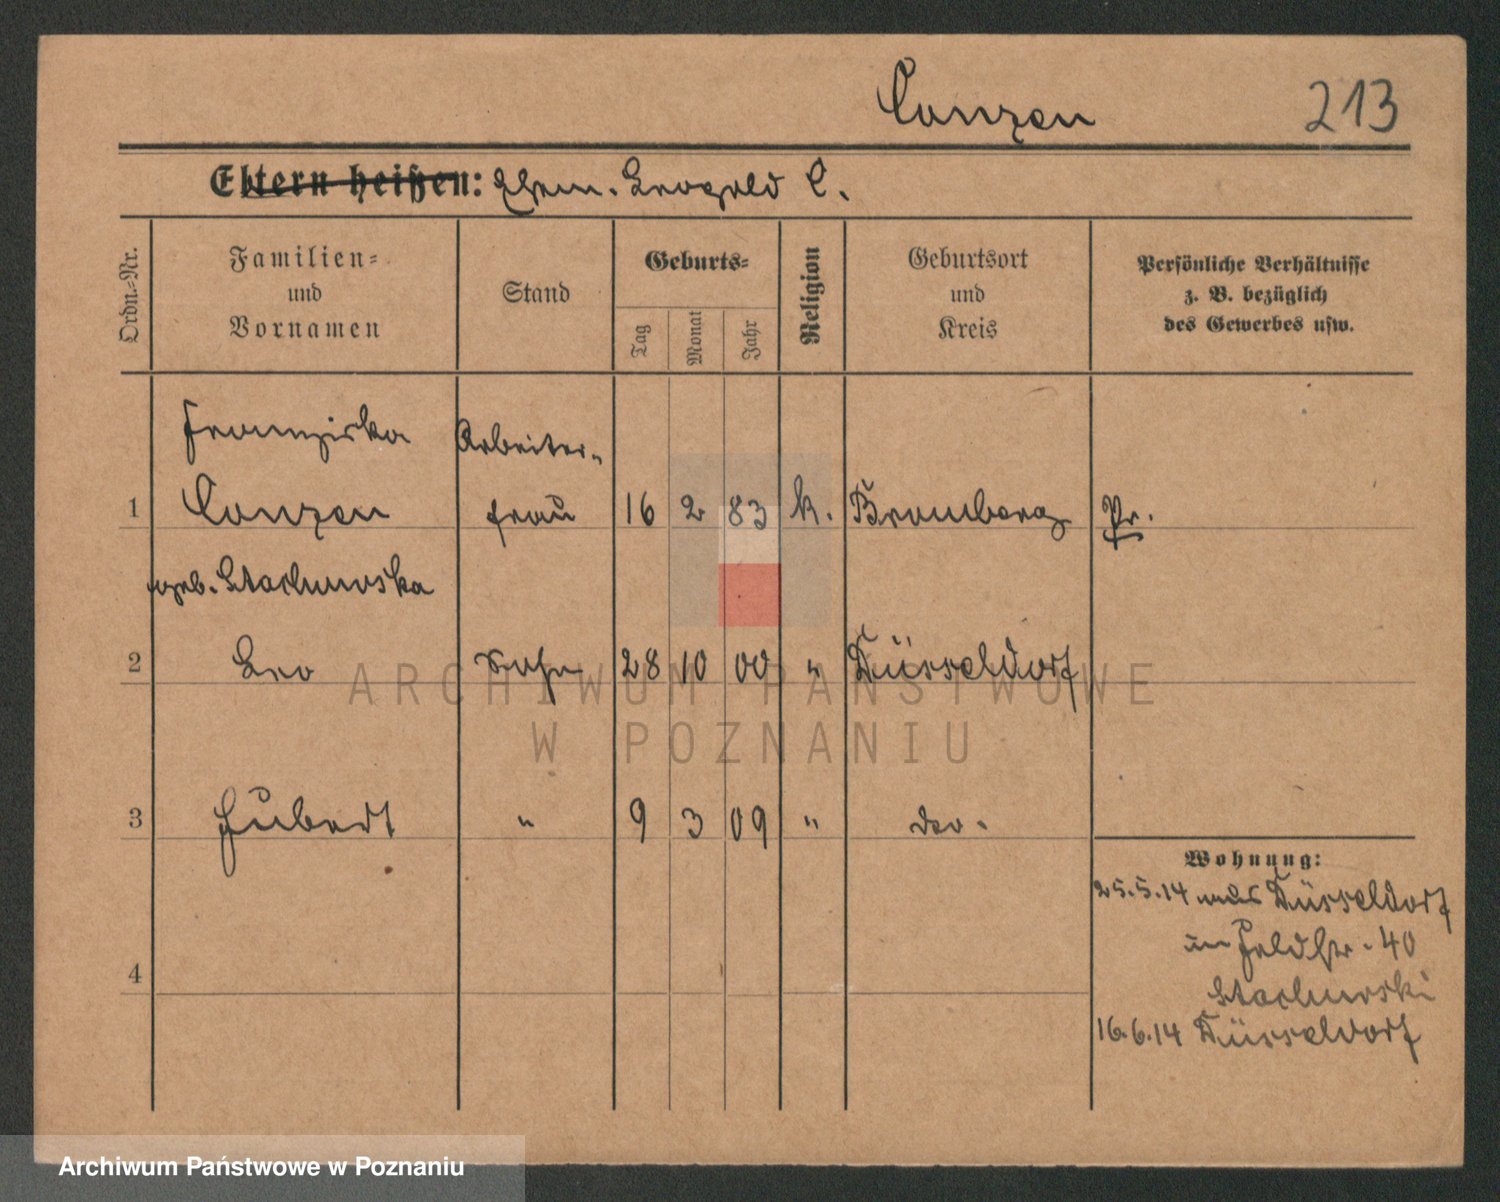 Conzen 213
Eltern heißen: Ehem. Leopold C.
Ordn.-Nr.
Familien-
und
Vornamen
Stand
Geburts-
Tag
Monat
Jahr
Religion
Geburtsort
und
Kreis
Persönliche Verhältnisse
z. B. bezüglich
des Gewerbes usw.
Franziska Arbeiter-
1 Conzen frau 16 2 83 k. Bromberg Pr.
geb. Stachurska
2 Leo Sohn 28 10 00 " Düsseldorf
3 Hubert " 9 3 09 " do.
Wohnung:
25.5.14 aus Düsseldorf
Feldstr. 40
4
Stachurski
16.6.14 Düsseldorf
ARCHIWUM PAŃSTWOWE
W POZNANIU
Archiwum Państwowe w Poznaniu